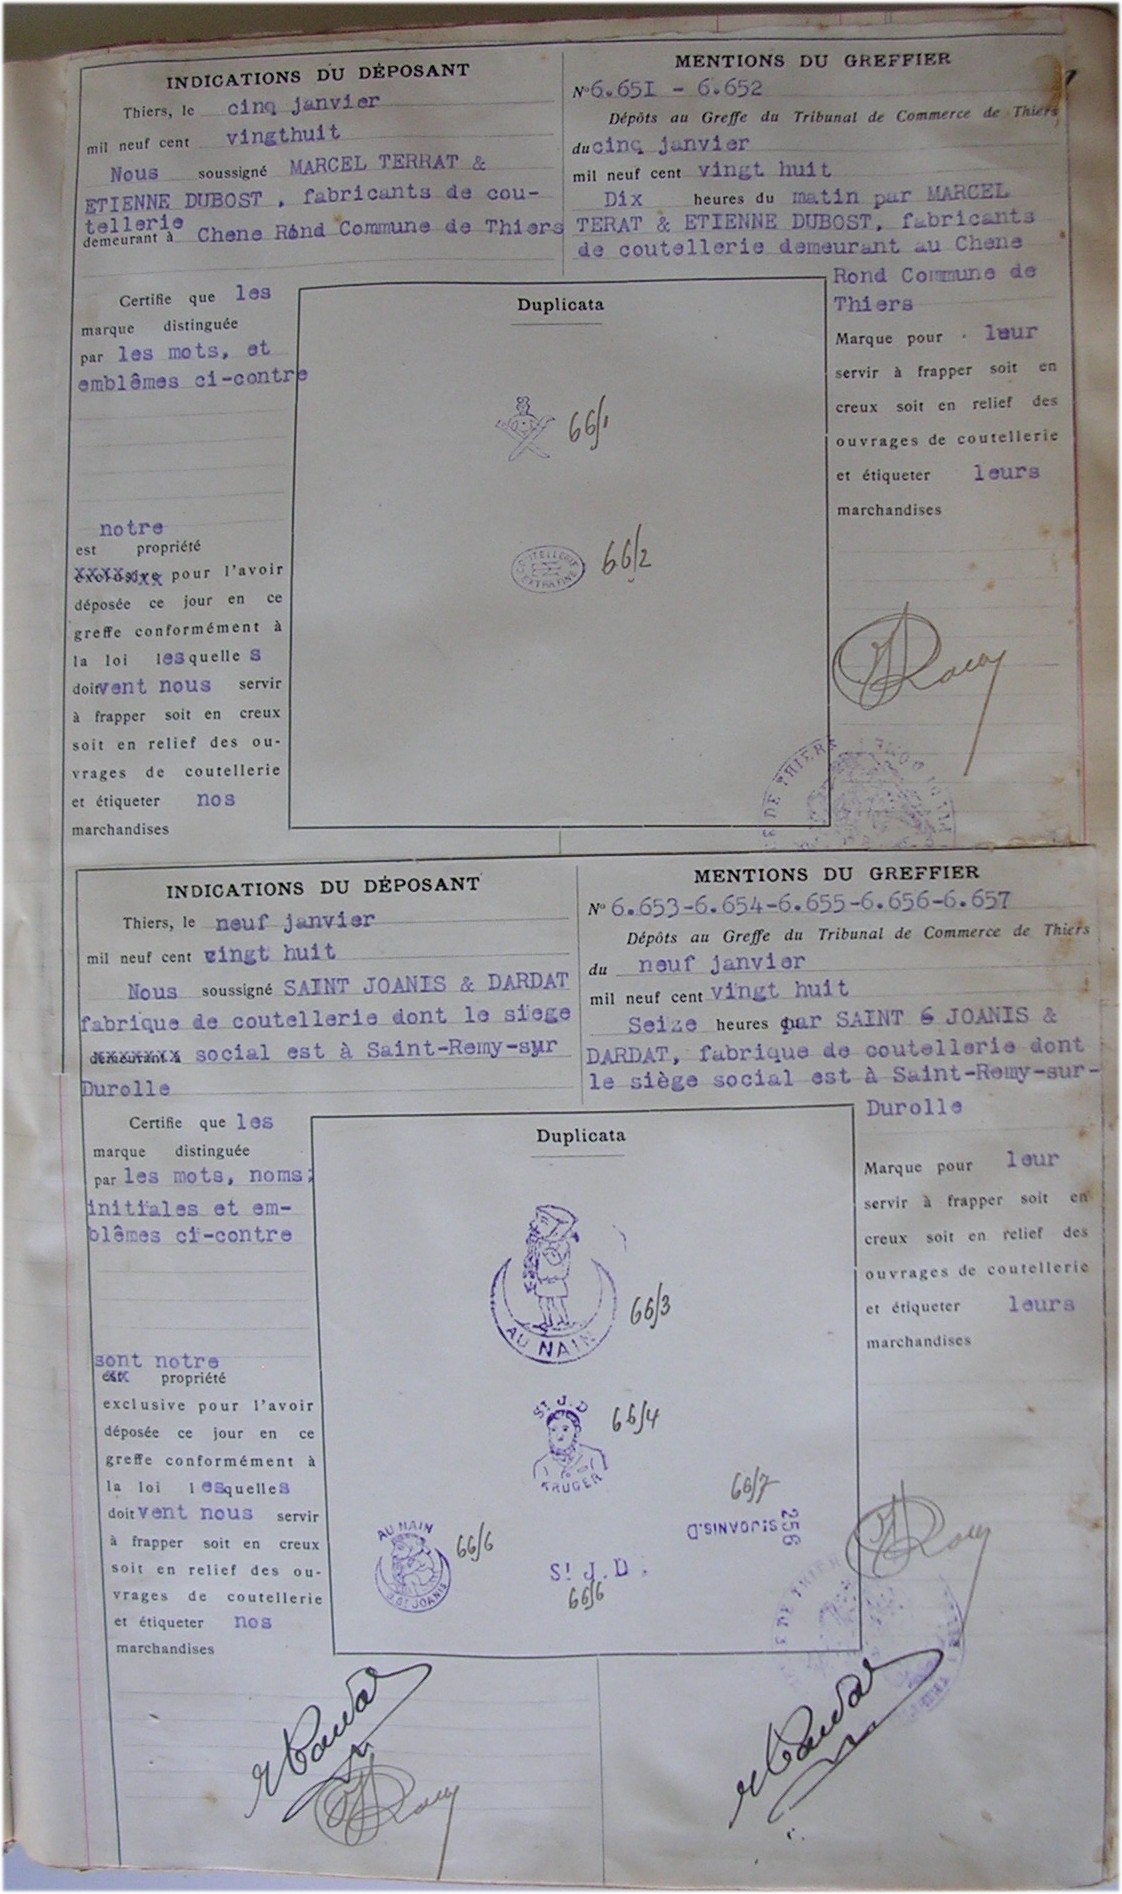 INDICATIONS DU DÉPOSANT
Thiers, le cinq janvier
mil neuf cent vingthuit
Nous soussigné MARCEL TERRAT &
ETIENNE DUBOST , fabricants de cou-
tellerie
demeurant à Chene Rond Commune de Thiers
MENTIONS DU GREFFIER
N° 6.651 - 6.652
Dépôts au Greffe du Tribunal de Commerce de Thiers
du cinq janvier
mil neuf cent vingt huit
Dix heures du matin par MARCEL
TERAT & ETIENNE DUBOST, fabricants
de coutellerie demeurant au Chene
Rond Commune de
Thiers
Certifie que les
marque distinguée
par les mots, et
emblêmes ci-contre
notre
est propriété
exclusive pour l'avoir
déposée ce jour en ce
greffe conformément à
la loi lesquelle s
doivent nous servir
à frapper soit en creux
soit en relief des ou-
vrages de coutellerie
et étiqueter nos
marchandises
Duplicata
66/1
COUTELLERIE
EXTRA FINE
66/2
Marque pour leur
servir à frapper soit en
creux soit en relief des
ouvrages de coutellerie
et étiqueter leurs
marchandises
DE THIERS
INDICATIONS DU DÉPOSANT
Thiers, le neuf janvier
mil neuf cent vingt huit
Nous soussigné SAINT JOANIS & DARDAT
fabrique de coutellerie dont le siege
demeurant à social est à Saint-Remy-sur
Durolle
MENTIONS DU GREFFIER
N° 6.653-6.654-6.655-6.656-6.657
Dépôts au Greffe du Tribunal de Commerce de Thiers
du neuf janvier
mil neuf cent vingt huit
Seize heures par SAINT JOANIS &
DARDAT, fabrique de coutellerie dont
le siège social est à Saint-Remy-sur-
Durolle
Certifie que les
marque distinguée
par les mots, noms;
initiales et em-
blêmes ci-contre
sont notre
est propriété
exclusive pour l'avoir
déposée ce jour en ce
greffe conformément à
la loi lesquelles
doitvent nous servir
à frapper soit en creux
soit en relief des ou-
vrages de coutellerie
et étiqueter nos
marchandises
Duplicata
AU NAIN
66/3
St. J. D
KRUGER
66/4
AU NAIN
D. St JOANIS
66/6
St J. D.
66/6
66/7
St JOANIS.D
256
Marque pour leur
servir à frapper soit en
creux soit en relief des
ouvrages de coutellerie
et étiqueter leurs
marchandises
DE THIERS